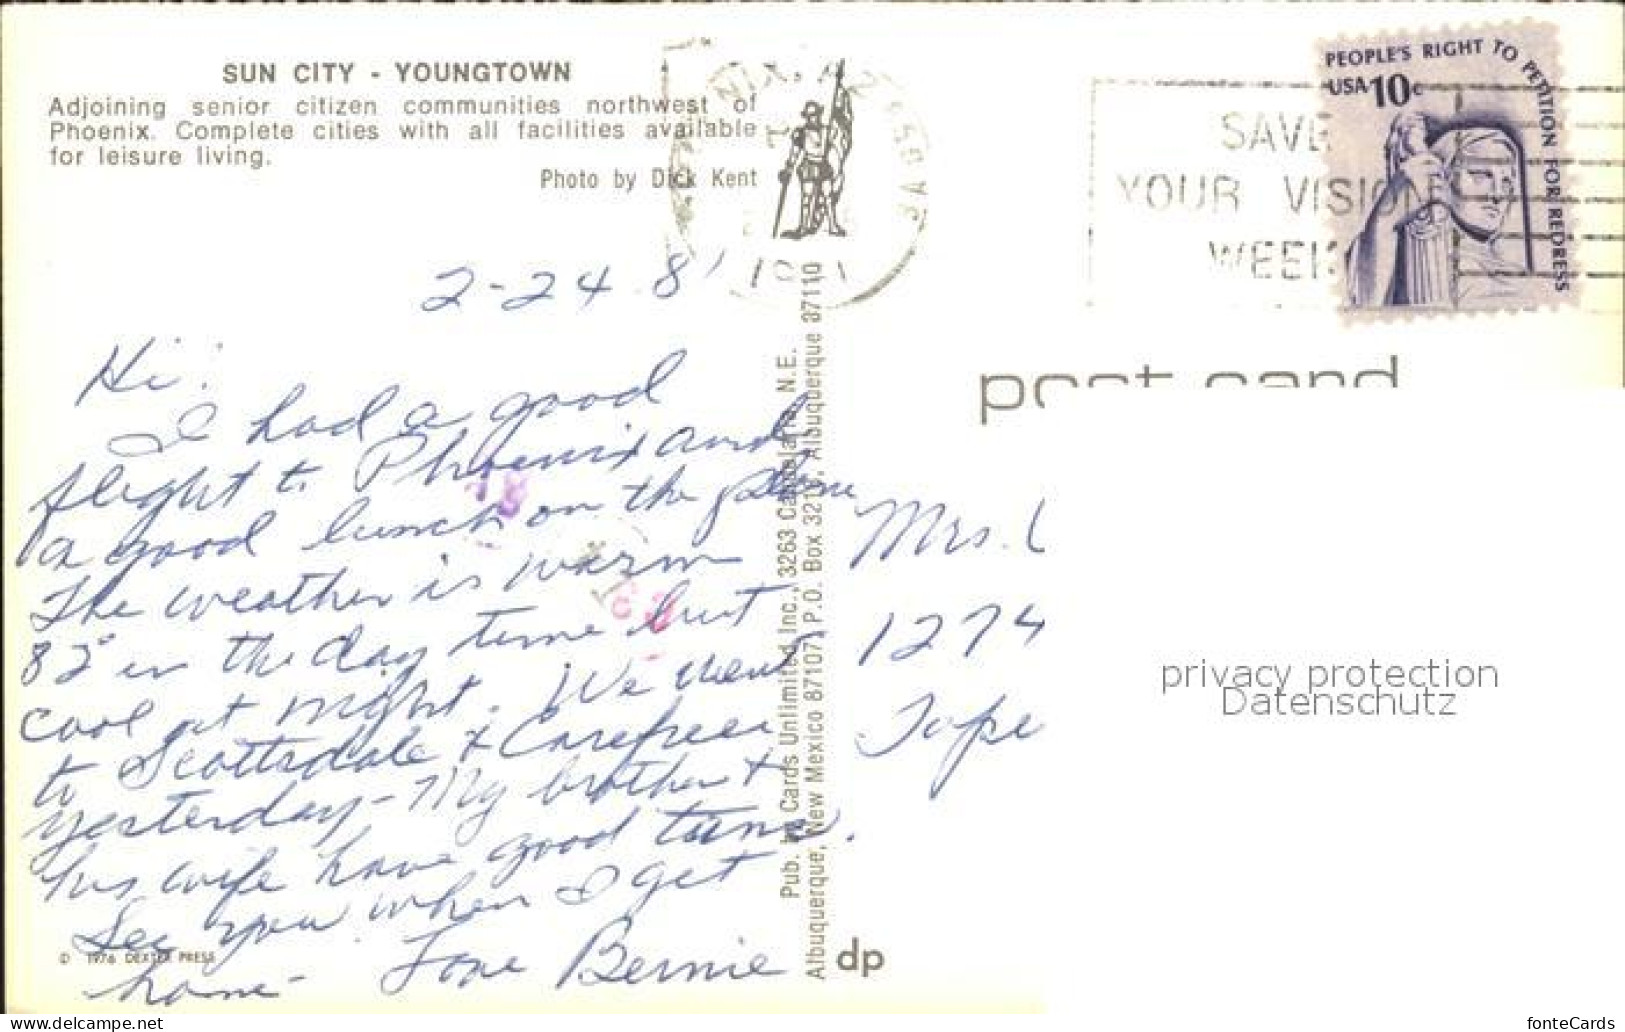 SUN CITY - YOUNGTOWN
Adjoining senior citizen communities northwest of
Phoenix. Complete cities with all facilities available
for leisure living.
Photo by Dick Kent
PEOPLE'S RIGHT TO PETITION FOR REDRESS
USA 10c
SAVE
YOUR VISION
WEEK
2-24 81
Hi!
I had a good
flight to Phoenix and
a good lunch on the plane
The weather is warm
82° in the day time but
cool at night. We went
to Scottsdale & Carefree
yesterday - My brother &
his wife have good time.
See you when I get
home - Love Bernie
© 1976 DEXTER PRESS
Pub. by Cards Unlimited Inc., 3263 Candelaria, N.E.
Albuquerque, New Mexico 87107, P.O. Box 3216, Albuquerque 87110
dp
post card
Mrs.
1274
Tope
privacy protection
Datenschutz
© www.delcampe.net
fonteCards